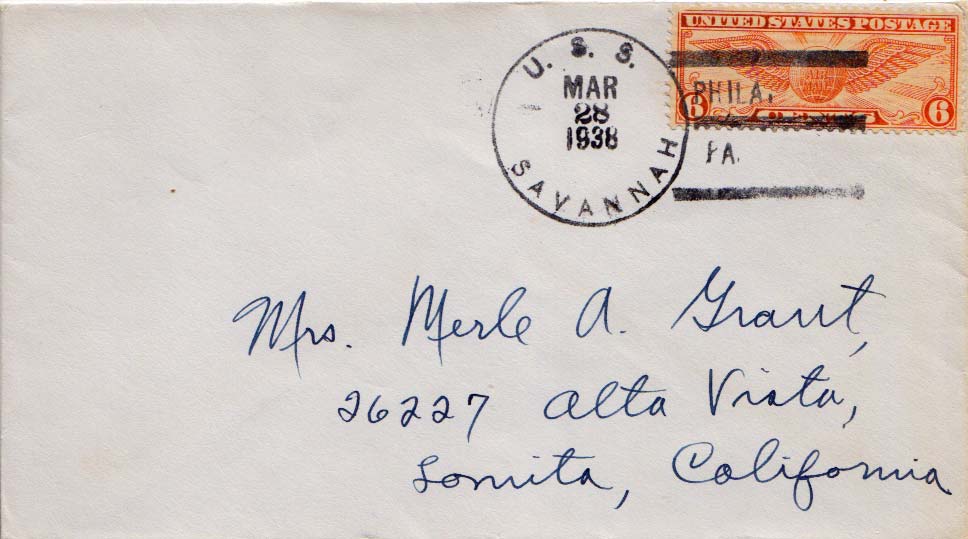 UNITED STATES POSTAGE
AIR MAIL
6 6
U. S. S.
MAR
28
1938
SAVANNAH
PHILA.
PA.
Mrs. Merle A. Grant,
26227 Alta Vista,
Lomita, California